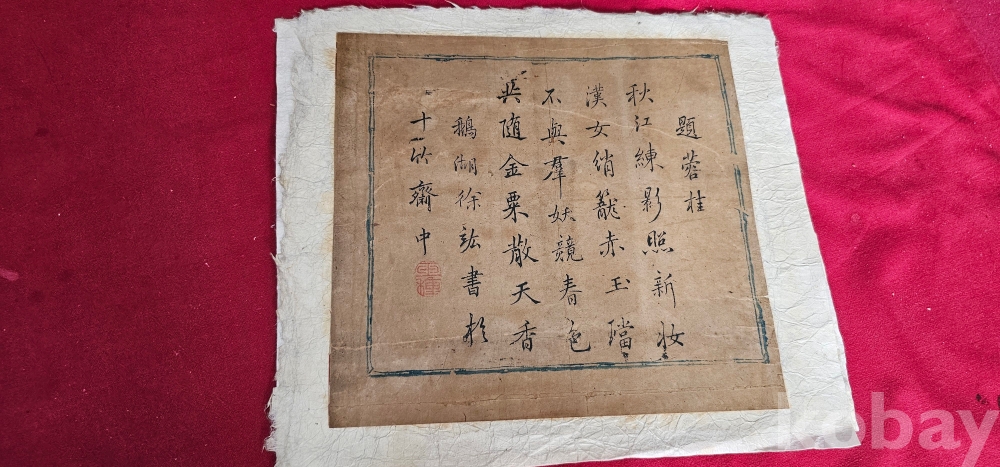 題蓉桂
秋江練影照新妝
漢女俏籠赤玉璫
不與羣妖競春色
共隨金粟散天香
鵝湖徐竑書於
十竹齋中
kobay